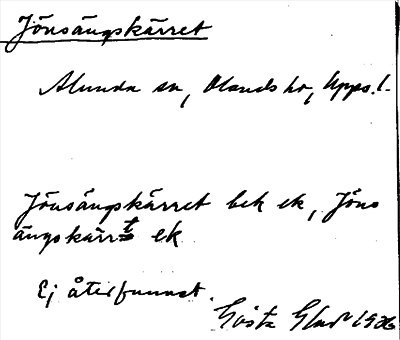 Jönsängskärret
Alunda sn, Olands hd, Upps. l.
Jönsängskärret bek ek, Jöns
ängskärret ek
Ej återfunnet.
Gösta 1926